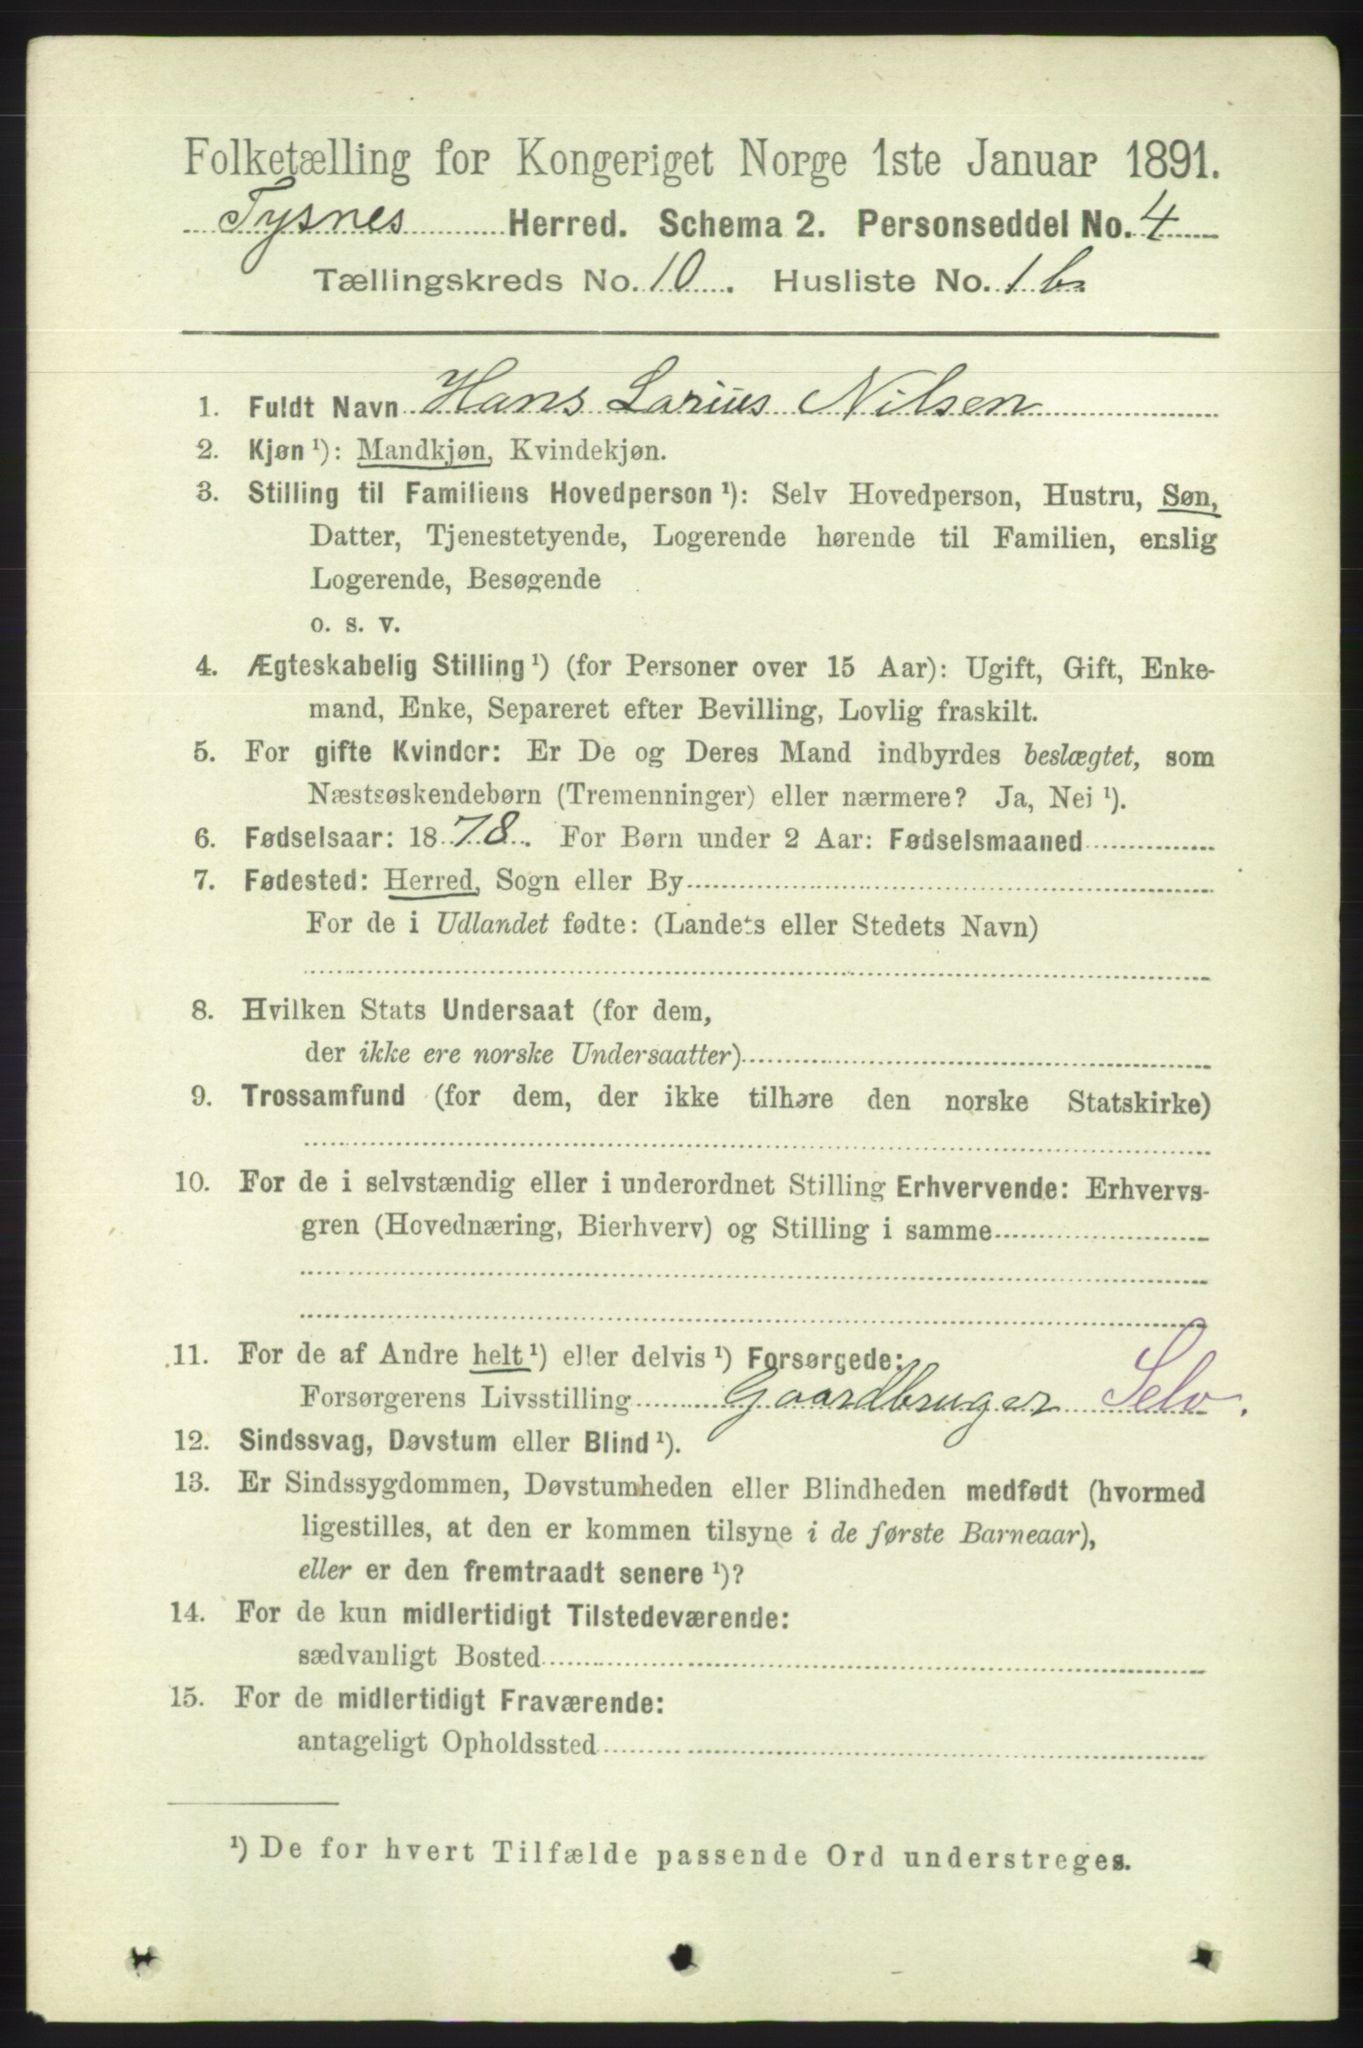 Folketælling for Kongeriget Norge 1ste Januar 1891.
Tysnes Herred. Schema 2. Personseddel No. 4
Tællingskreds No. 10. Husliste No. 1 b.
1. Fuldt Navn Hans Larius Nilsen
2. Kjøn ¹): Mandkjøn, Kvindekjøn.
3. Stilling til Familiens Hovedperson ¹): Selv Hovedperson, Hustru, Søn,
Datter, Tjenestetyende, Logerende hørende til Familien, enslig
Logerende, Besøgende
o. s. v.
4. Ægteskabelig Stilling ¹) (for Personer over 15 Aar): Ugift, Gift, Enke-
mand, Enke, Separeret efter Bevilling, Lovlig fraskilt.
5. For gifte Kvinder: Er De og Deres Mand indbyrdes beslægtet, som
Næstsøskendebørn (Tremenninger) eller nærmere? Ja, Nei ¹).
6. Fødselsaar: 1878. For Børn under 2 Aar: Fødselsmaaned
7. Fødested: Herred, Sogn eller By
For de i Udlandet fødte: (Landets eller Stedets Navn)
8. Hvilken Stats Undersaat (for dem,
der ikke ere norske Undersaatter)
9. Trossamfund (for dem, der ikke tilhøre den norske Statskirke)
10. For de i selvstændig eller i underordnet Stilling Erhvervende: Erhvervs-
gren (Hovednæring, Bierhverv) og Stilling i samme
11. For de af Andre helt ¹) eller delvis ¹) Forsørgede:
Forsørgerens Livsstilling Gaardbruger Selv.
12. Sindssvag, Døvstum eller Blind ¹).
13. Er Sindssygdommen, Døvstumheden eller Blindheden medfødt (hvormed
ligestilles, at den er kommen tilsyne i de første Barneaar),
eller er den fremtraadt senere ¹)?
14. For de kun midlertidigt Tilstedeværende:
sædvanligt Bosted
15. For de midlertidigt Fraværende:
antageligt Opholdssted
¹) De for hvert Tilfælde passende Ord understreges.